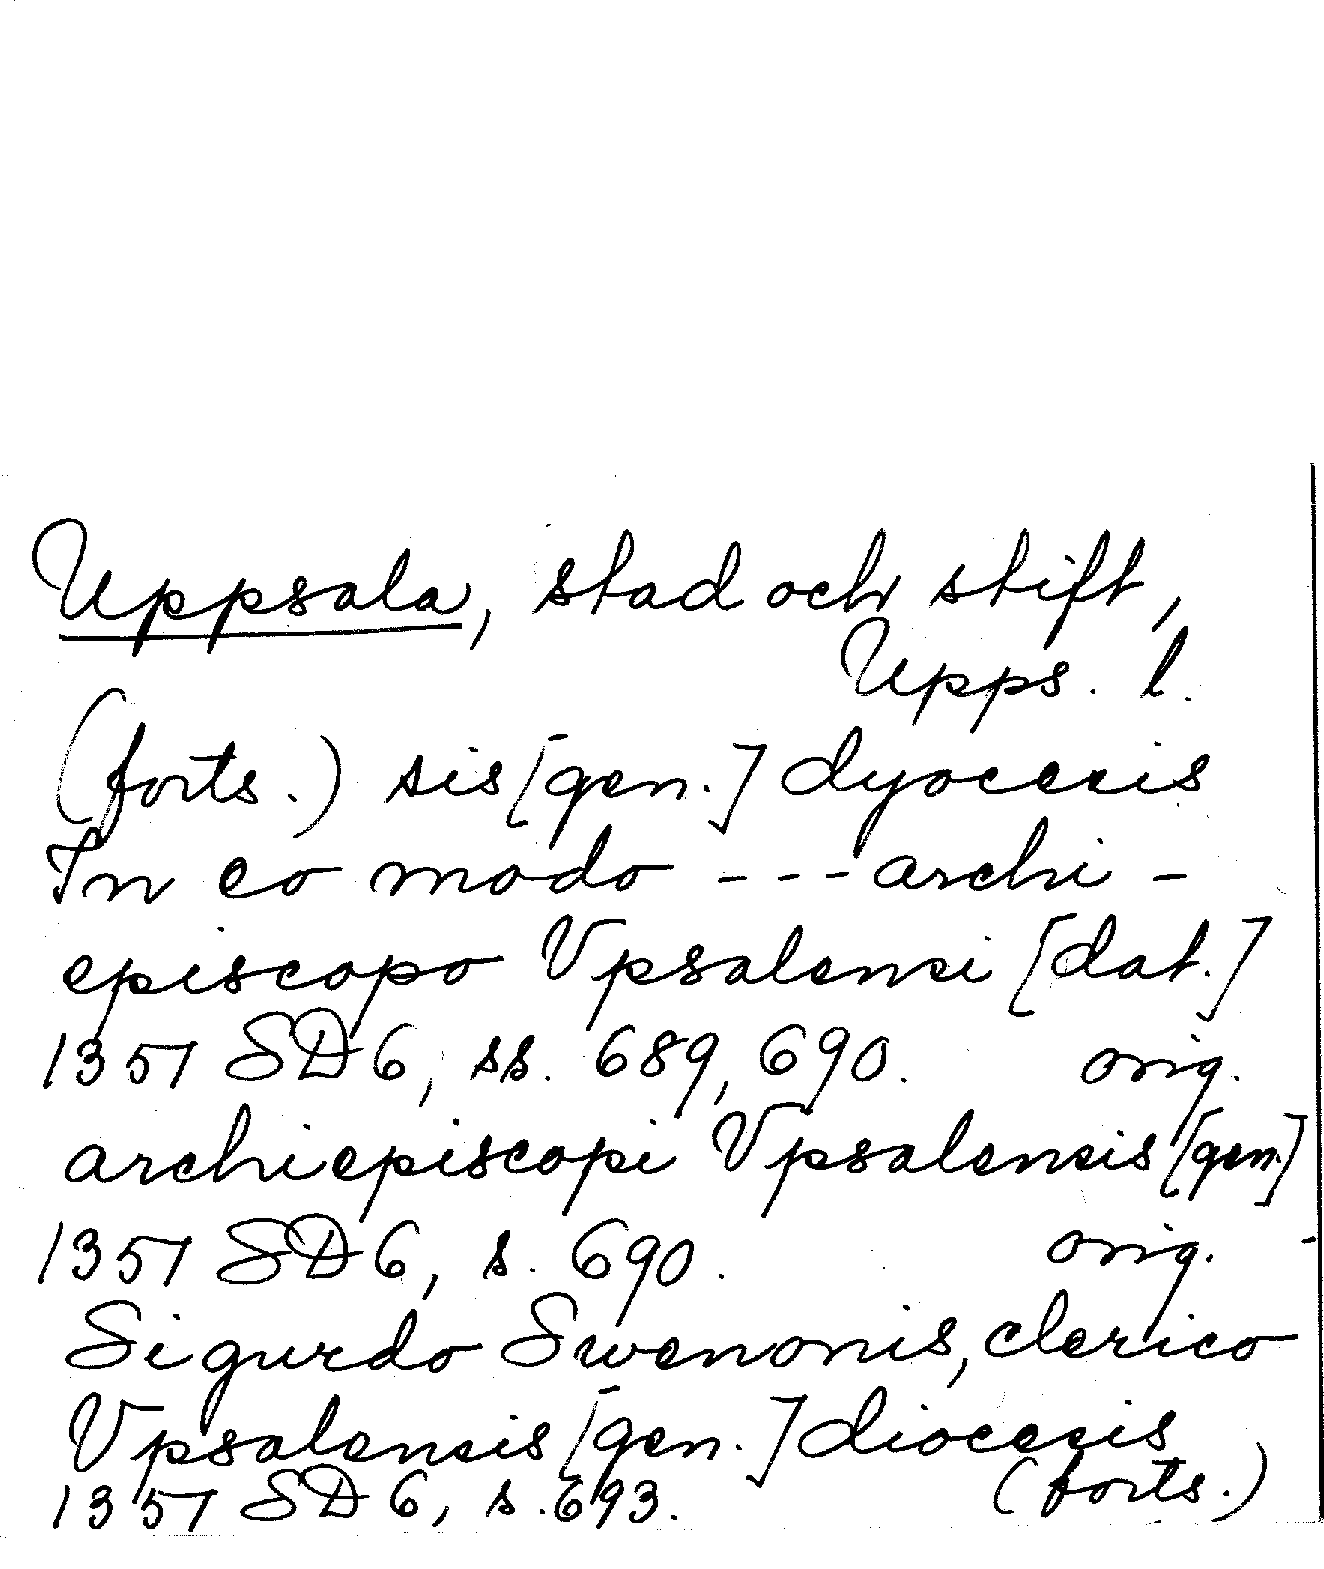 Uppsala, stad och stift,
Upps. l.
(forts.) sis [gen.] dyocesis
In eo modo --- archi-
episcopo Vpsalensi [dat.]
1357 SD 6, ss. 689, 690. orig.
archiepiscopi Vpsalensis [gen.]
1357 SD 6, s. 690. orig.
Sigurdo Swenonis, clerico
Vpsalensis [gen.] diocesis
1357 SD 6, s. 693. (forts.)